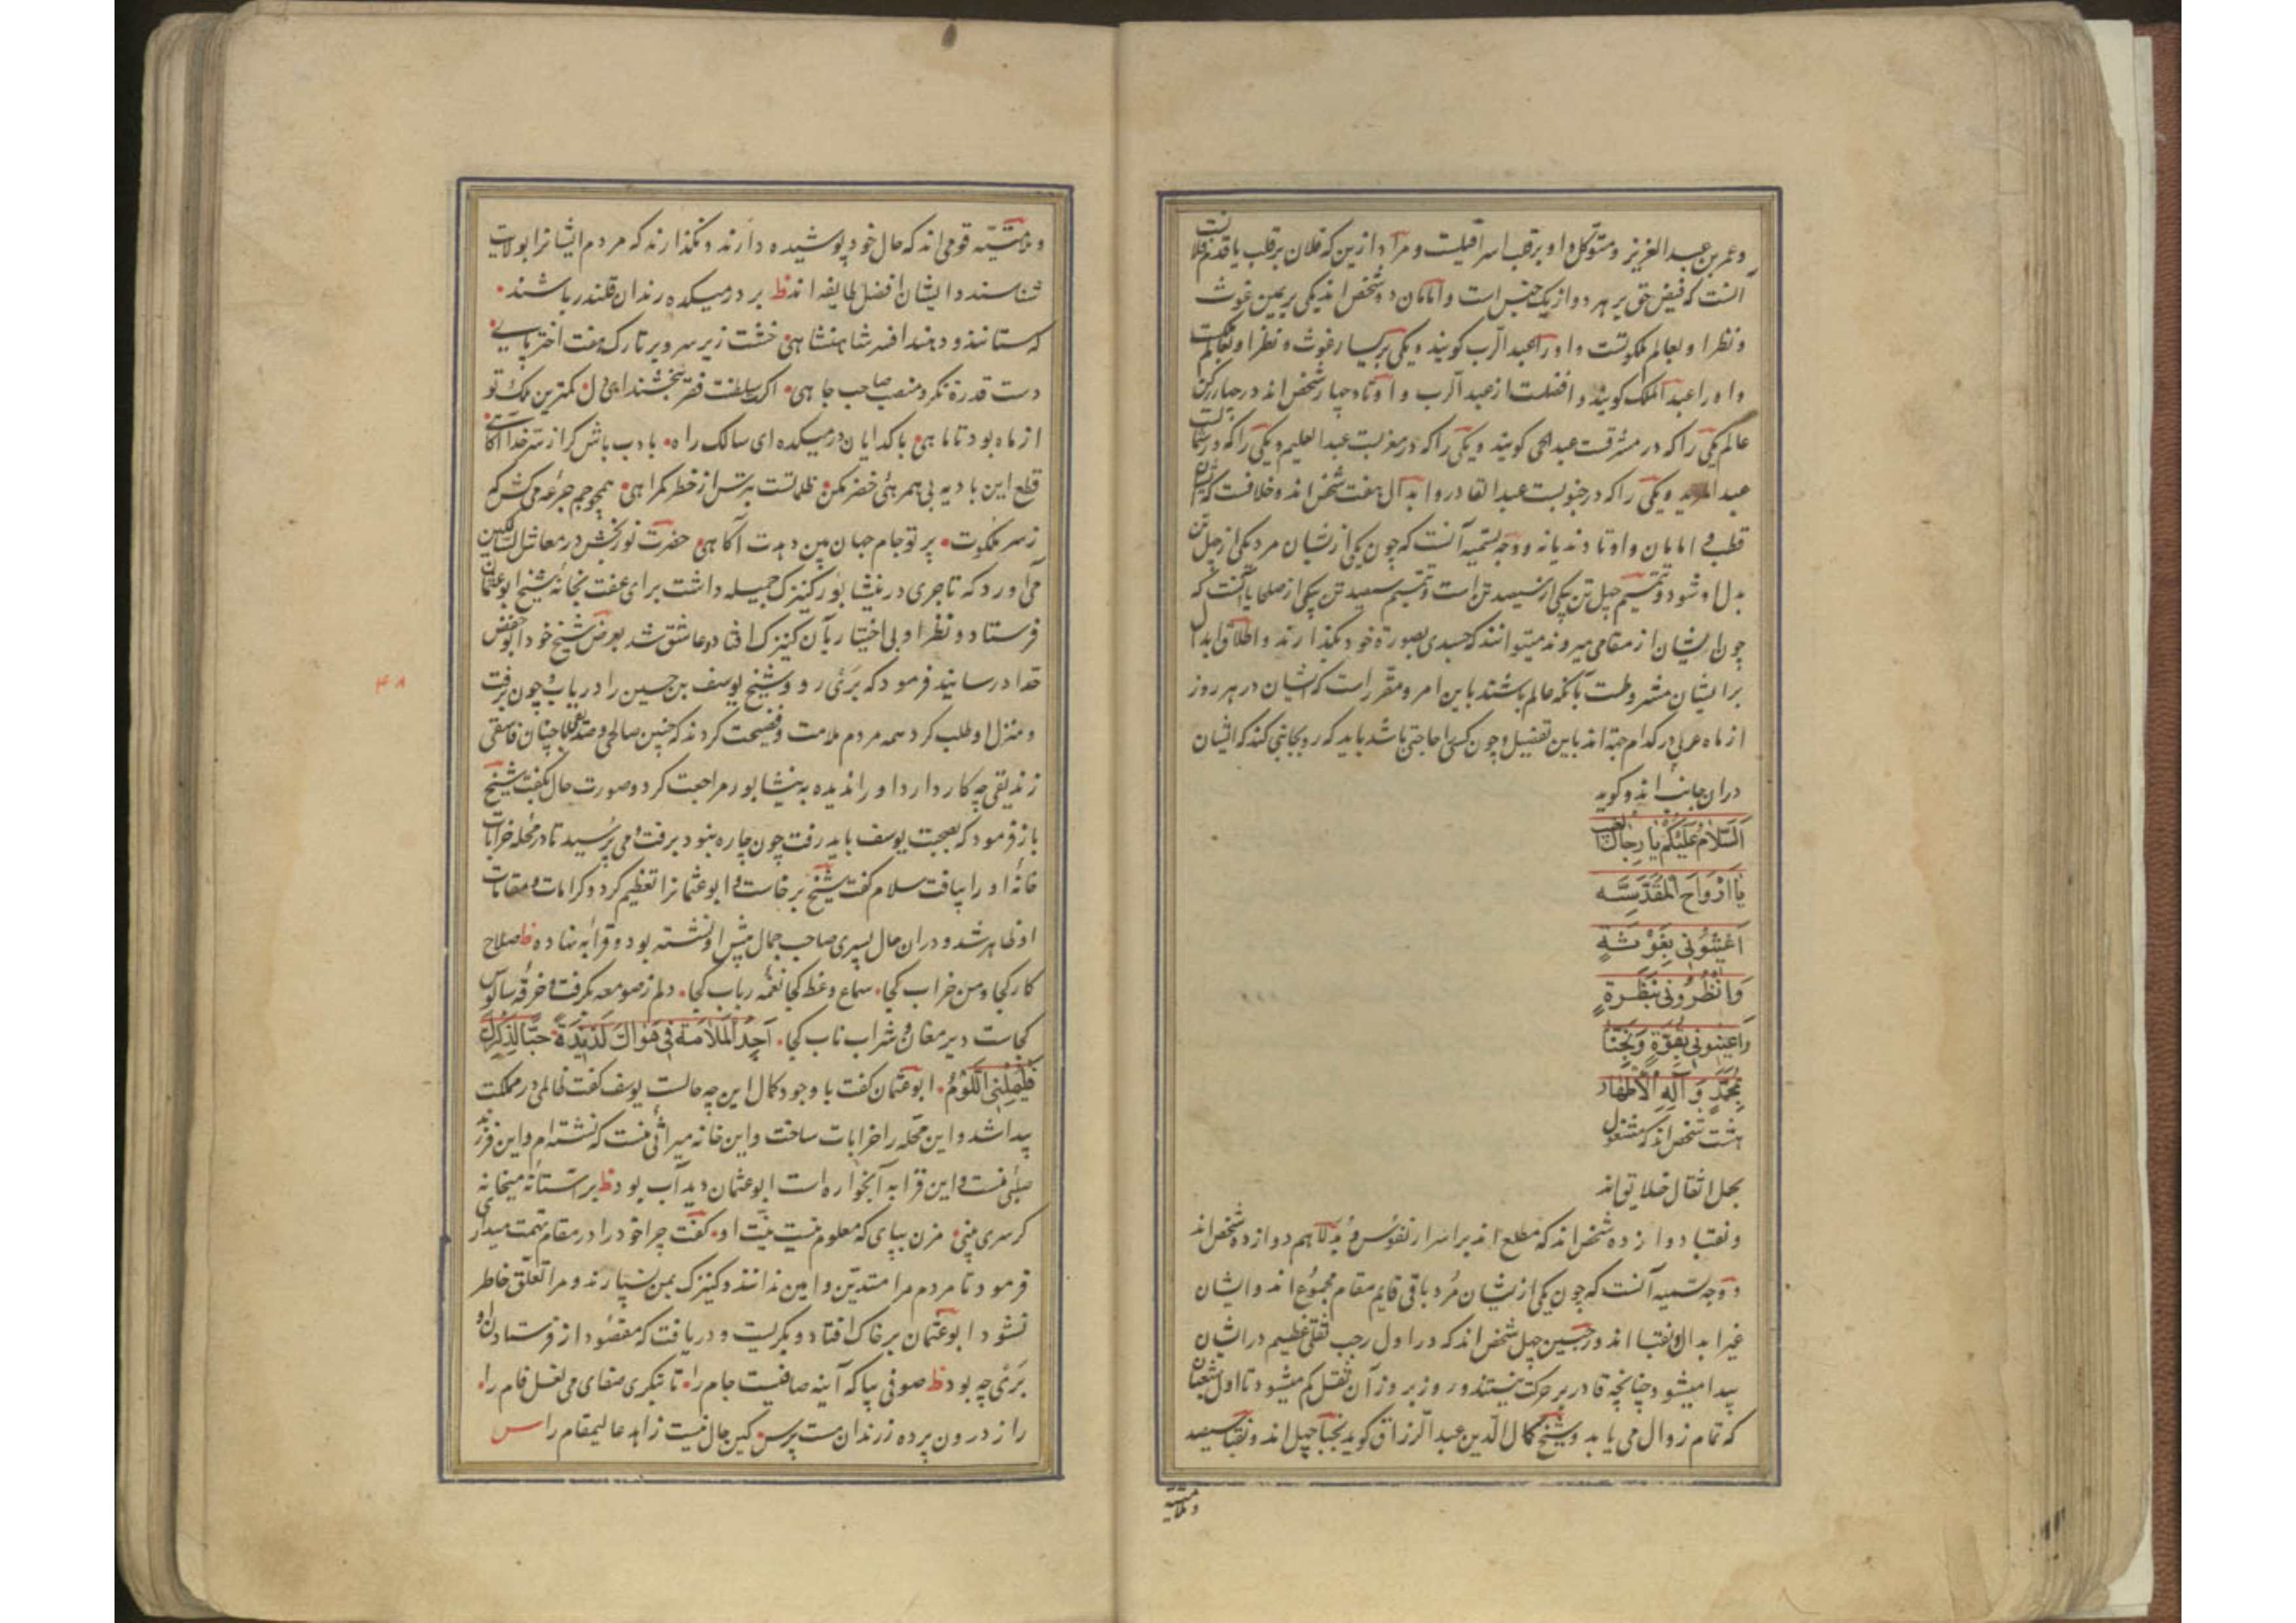 وعمر بن عبد العزیز و متوکل و او بر قلب اسرافیلست و مراد ازین که فلان بر قلب یا قدم فلانست
آنست که فیض حق بر هر دو از یک جنس است و امامان دو شخص اند یکی بر یمین غوث
و نظر او بعالم ملکوتست و او را عبد الرب کویند و یکی بر یسار غوث و نظر او بعالم
و او را عبد الملک کویند و افضلست از عبد الرب و اوتاد چهار شخص اند در چهار رکن
عالم یکی را که در مشرقست عبد الحی کویند و یکی را که در مغربست عبد العلیم و یکی را که در شمالست
عبد المرید و یکی را که در جنوبست عبد القادر و ابدال هفت شخص اند و خلافست که ایشان
قطب و امامان و اوتادند یا نه و وجه تسمیه آنست که چون یکی از یشان مرد یکی از چهل تن
بدل او شود و تتمیم چهل تن بیکی از سیصد تن است و تتمیم سیصد تن بیکی از صلحا یا آنست که
چون ایشان از مقامی میروند میتوانند که جسدی بصورة خود بکذارند و اطلاق ابدال
بر ایشان مشروطست بآنکه عالم باشند باین امر و مقرر است که ایشان در هر روز
از ماه عربی در کدام جهة اند باین تفصیل و چون کسی را حاجتی باشد باید که رو بجانبی کند که ایشان
دران جانب اند و کوید
اَلسَّلامُ عَلَيْكُمْ يا رِجالَ الغيب
يا اَرْواحَ الْمُقَدَّسَه
اَغيثُوني بِغَوْثَةٍ
وَانْظُرُوني بِنَظْرَةٍ
وَاَعينوني بِقُوَّةٍ
بِمُحَمَّدٍ وَ آلِهِ الْأَطْهار
هشت شخص اند که مشغول
بحمل اثقال خلایق اند
و نقبا دوازده شخص اند که مطلع اند بر اسرار نفوس و بدلا هم دوازده شخص اند
و وجه تسمیه آنست که چون یکی از یشان مُرد باقی قایم مقام مجموع اند و ایشان
غیر ابدال و نقبا اند و رجبیین چهل شخص اند که در اول رجب ثقلی عظیم در ایشان
پیدا میشود چنانچه قادر بر حرکت نیستند و روز بروز آن ثقل کم میشود تا اول شعبان
که تمام زوال می یابد و شیخ کمال الدین عبد الرزاق کوید نجبا چهل اند و نقبا سیصد
و ملامتیه
و ملامتیّه قومی اند که حال خود پوشیده دارند و نکذارند که مردم ایشانرا بولایت
شناسند و ایشان افضل طایفه اند ظ بر در میکده رندان قلندر باشند
که ستانند و دهند افسر شاهنشاهی خشت زیر سر و بر تارک هفت اختر پای
دست قدرة نکر و منصب صاحب جاهی اکرت سلطنت فقر ببخشند ای دل کمترین ملک تو
از ماه بود تا ماهی با کدایان در میکده ای سالک راه با ادب باش کر از سر خدا آکاهی
قطع این بادیه بی همرهی خضر مکن ظلماتست بترس از خطر کمراهی همچو جم جرعه می کش که
ز سر ملکوت پرتو جام جهان بین دهدت آکاهی حضرت نوربخش در معاش السالکین
می آورد که تاجری در نیشابور کنیزک جمیله داشت برای عفت بخانه شیخ ابو عثمان
فرستاد و نظر او بی اختیار بآن کنیزک افتاد و عاشق شد بعرض شیخ خود ابو حفص
حداد رسانید فرمود که بری رو و شیخ یوسف بن حسین را دریاب و چون برفت
و منزل او طلب کرد همه مردم ملامت و فضیحت کردند که چنین صالحی و صدیقی را با چنان فاسقی
زندیقی چه کار دارد او را ندیده به نیشابور مراجعت کرد و صورت حال بکفت شیخ
باز فرمود که بصحبت یوسف باید رفت چون چاره نبود برفت و می پرسید تا در محله خرابات
خانه او را بیافت سلام کفت شیخ برخاست و ابو عثمانرا تعظیم کرد و کرامات و مقامات
او ظاهر شد و دران حال پسری صاحب جمال پیش او نشسته بود و قرابه نهاده ظ صلاح
کار کجا و من خراب کجا سماع وعظ کجا نغمه رباب کجا دلم ز صومعه بکرفت و خرقه سالوس
کجاست دیر مغان و شراب ناب کجا اَجِدُ الْمَلامَةَ في هَواكَ لَذيذَةً حُبًّا لِذِكْرِكَ
فَلْيَلُمْنِي اللُّوَّمُ ابو عثمان کفت با وجود کمال این چه حالست یوسف کفت ظالمی در مملکت
پیدا شد و این محله را خرابات ساخت و این خانه میراثی منست که نشسته ام و این فرزند
صلبی منست و این قرابه آبخواره است ابو عثمان دید آب بود ظ بر آستانه میخانه
کر سری بینی مزن بپای که معلوم نیست نیّت او کفت چرا خود را در مقام تهمت میداری
فرمود تا مردم مرا متدیّن و امین ندانند و کنیزک بمن نسپارند و مرا تعلّق خاطر
نشود ابو عثمان بر خاک افتاد و بکریست و دریافت که مقصود از فرستادن او
بری چه بود ظ صوفی بیا که آینه صافیست جام را تا بنکری صفای می لعل فام را
راز درون پرده ز رندان مست پرس کین حال نیست زاهد عالیمقام را س
۴۸